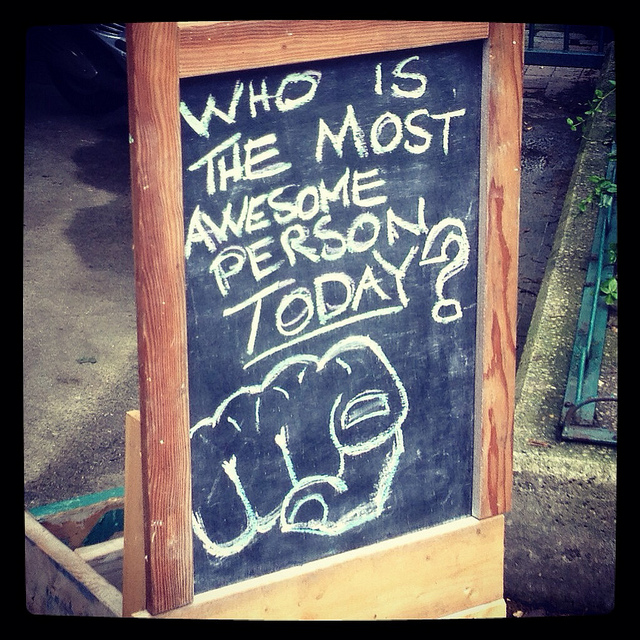 WHO IS
THE MOST
AWESOME
PERSON
TODAY?